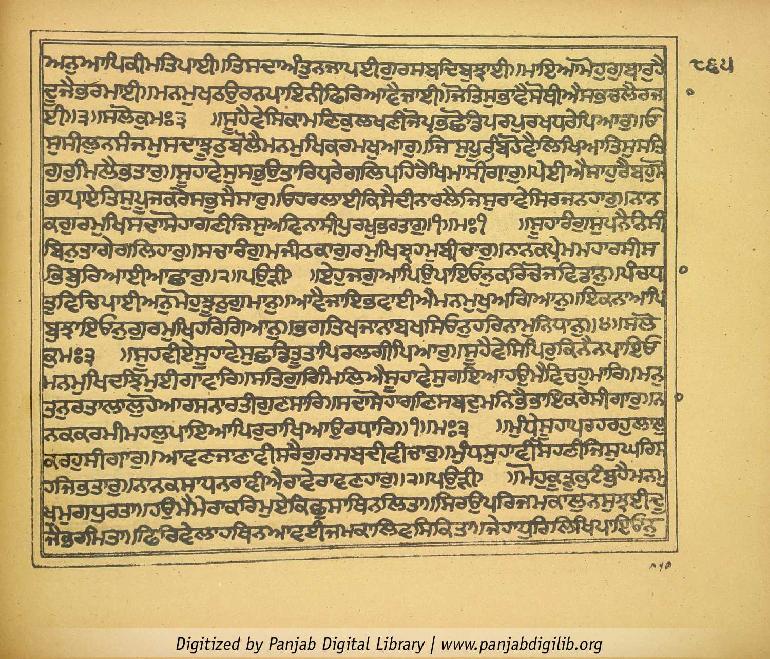 ਅਨੁਆਪਿਕੀਮਤਿਪਾਈ॥ਤਿਸਦਾਅੰਤੁਨਜਾਪਈਗੁਰਸਬਦਿਬੁਝਾਈ॥ਮਾਇਆਮੋਹੁਗੁਬਾਰੁਹੈ
ਦੂਜੈਭਰਮਾਈ॥ਮਨਮੁਖਠਉਰਨਪਾਇਨੀਫਿਰਿਆਵੈਜਾਈ॥ਜੋਤਿਸੁਭਾਵੈਸੋਥੀਐਸਭਚਲੈਰਜਾ
ਈ॥੩॥ਸਲੋਕੁਮਃ੩ ॥ਸੂਹੈਵੇਸਿਕਾਮਣਿਕੁਲਖਣੀਜੋਪ੍ਰਭਛੋਡਿਪਰਪੁਰਖਧਰੇਪਿਆਰੁ॥ਓ
ਸੁਸੀਲੁਨਸੰਜਮੁਸਦਾਝੂਠੁਬੋਲੈਮਨਮੁਖਿਕਰਮਖੁਆਰੁ॥ਜਿਸੁਪੂਰਬਿਹੋਵੈਲਿਖਿਆਤਿਸੁਸਤਿ
ਗੁਰੁਮਿਲੈਭਤਾਰੁ॥ਸੂਹਾਵੇਸੁਸਭੁਉਤਾਰਿਧਰੇਗਲਿਪਹਿਰੈਖਿਮਾਸੀਗਾਰੁ॥ਪੇਈਐਸਾਹੁਰੈਬਹੁਸੋ
ਭਾਪਾਏਤਿਸੁਪੂਜਕਰੇਸਭੁਸੈਸਾਰੁ॥ਓਹਰਲਾਈਕਿਸੈਦੀਨਾਰਲੈਜਿਸੁਰਾਵੇਸਿਰਜਨਹਾਰੁ॥ਨਾਨ
ਕਗੁਰਮੁਖਿਸਦਾਸੋਹਾਗਣੀਜਿਸੁਅਵਿਨਾਸੀਪੁਰਖੁਭਰਤਾਰੁ॥੧॥ਮਃ੧ ॥ਸੂਹਾਰੰਗੁਸੁਪਨੈਨਿਸੀ
ਬਿਨੁਤਾਗੇਗਲਿਹਾਰੁ॥ਸਚਾਰੰਗੁਮਜੀਠਕਾਗੁਰਮੁਖਿਬ੍ਰਹਮਬੀਚਾਰੁ॥ਨਾਨਕਪ੍ਰੇਮਮਹਾਰਸੀਸ
ਭਿਬੁਰਿਆਈਆਛਾਰੁ॥੨॥ਪਉੜੀ ॥ਇਹੁਜਗੁਆਪਿਉਪਾਇਓਨੁਕਰਿਚੋਜਵਿਡਾਨੁ॥ਪੰਚਧਾ
ਤੁਵਿਚਿਪਾਈਅਨੁਮੋਹੁਝੂਠੁਗੁਮਾਨੁ॥ਆਵੈਜਾਇਭਵਾਈਐਮਨਮੁਖੁਅਗਿਆਨੁ॥ਇਕਨਾਆਪਿ
ਬੁਝਾਇਓਨੁਗੁਰਮੁਖਿਹਰਿਗਿਆਨੁ॥ਭਗਤਿਖਜਾਨਾਬਖਸਿਓਨੁਹਰਿਨਾਮੁਨਿਧਾਨੁ॥੪॥ਸਲੋ
ਕੁਮਃ੩ ॥ਸੂਹਵੀਏਸੂਹਾਵੇਸੁਛਡਿਤੂਤਾਪਿਰਲਗੀਪਿਆਰੁ॥ਸੂਹੈਵੇਸਿਪਿਰੁਕਿਨੈਨਪਾਇਓ
ਮਨਮੁਖਿਦਝਿਮੁਈਗਾਵਾਰਿ॥ਸਤਿਗੁਰਿਮਿਲਿਐਸੂਹਾਵੇਸੁਗਇਆਹਉਮੈਵਿਚਹੁਮਾਰਿ॥ਮਨੁ
ਤਨੁਰਤਾਲਾਲੁਹੋਆਰਸਨਾਰਤੀਗੁਣਸਾਰਿ॥ਸਦਾਸੋਹਾਗਣਿਸਬਦੁਮਨਿਭੈਭਾਇਕਰੇਸੀਗਾਰੁ॥ਨਾ
ਨਕਕਰਮੀਮਹਲੁਪਾਇਆਪਿਰੁਰਾਖਿਆਉਰਧਾਰਿ॥੧॥ਮਃ੩ ॥ਮੁੰਧੇਸੂਹਾਪਰਹਰਹੁਲਾਲੁ
ਕਰਹੁਸੀਗਾਰੁ॥ਆਵਣਜਾਣਾਵੀਸਰੈਗੁਰਸਬਦੀਵੀਚਾਰੁ॥ਮੁੰਧਸੁਹਾਵੀਸੋਹਣੀਜਿਸੁਘਰਿਸ
ਹਜਿਭਤਾਰੁ॥ਨਾਨਕਸਾਧਨਰਾਵੀਐਰਾਵੇਰਾਵਣਹਾਰੁ॥੨॥ਪਉੜੀ ॥ਮੋਹੁਕੂੜੁਕੁਟੰਬੁਹੈਮਨਮੁ
ਖੁਮੁਗਧੁਰਤਾ॥ਹਉਮੈਮੇਰਾਕਰਿਮੁਏਕਿਛੁਸਾਥਿਨਲਿਤਾ॥ਸਿਰਉਪਰਿਜਮਕਾਲੁਨਸੁਝਈਦੂ
ਜੈਭਰਮਿਤਾ॥ਫਿਰਿਵੇਲਾਹਥਿਨਆਵਈਜਮਕਾਲਿਵਸਿਕਿਤਾ॥ਜੇਹਾਧੁਰਿਲਿਖਿਪਾਇਓਨੁ
੮੬੫
Digitized by Panjab Digital Library | www.panjabdigilib.org